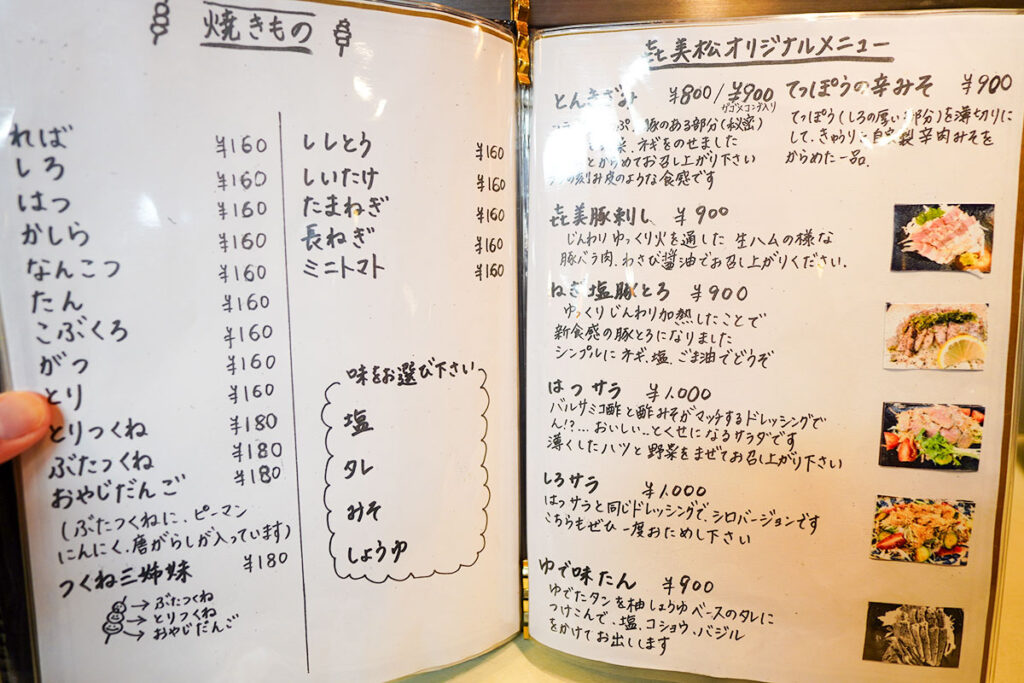 焼きもの
れば￥160
しろ ￥160
はつ ￥160
かしら ￥160
なんこつ ￥160
たん ￥160
こぶくろ ￥160
がつ ￥160
とり ￥160
とりつくね ￥180
ぶたつくね ￥180
おやじだんご ￥180
(ぶたつくねに、ピーマン
にんにく、唐がらしが入っています)
つくね三姉妹 ￥180
→ぶたつくね
→とりつくね
→おやじだんご
ししとう ￥160
しいたけ ￥160
たまねぎ ￥160
長ねぎ ￥160
ミニトマト ￥160
味をお選び下さい
塩
タレ
みそ
しょうゆ
㐂美松オリジナルメニュー
とんきざみ ￥800/￥900
豚のある部分(秘密)
ネギをのせました
とからめてお召し上がり下さい
の刻み皮のような食感です
てっぽうの辛みそ ￥900
てっぽう(しろの厚い部分)を薄切りに
して、きゅうりと自家製辛肉みそを
からめた一品。
㐂美豚刺し ￥900
じんわりゆっくり火を通した 生ハムの様な
豚バラ肉、わさび醤油でお召し上がりください。
ねぎ塩豚とろ ￥900
ゆっくりじんわり加熱したことで
新食感の豚とろになりました
シンプルに ネギ、塩、ごま油でどうぞ
はつサラ ￥1.000
バルサミコ酢と酢みそがマッチするドレッシングで
ん!?...おいしい..とくせになるサラダです
薄くしたハツと野菜をまぜてお召し上がり下さい
しろサラ ￥1.000
はっサラと同じドレッシングで、シロバージョンです
こちらもぜひ一度おためし下さい
ゆで味たん ￥900
ゆでたタンを柚しょうゆベースのタレに
つけこんで、塩、コショウ、バジル
をかけてお出しします